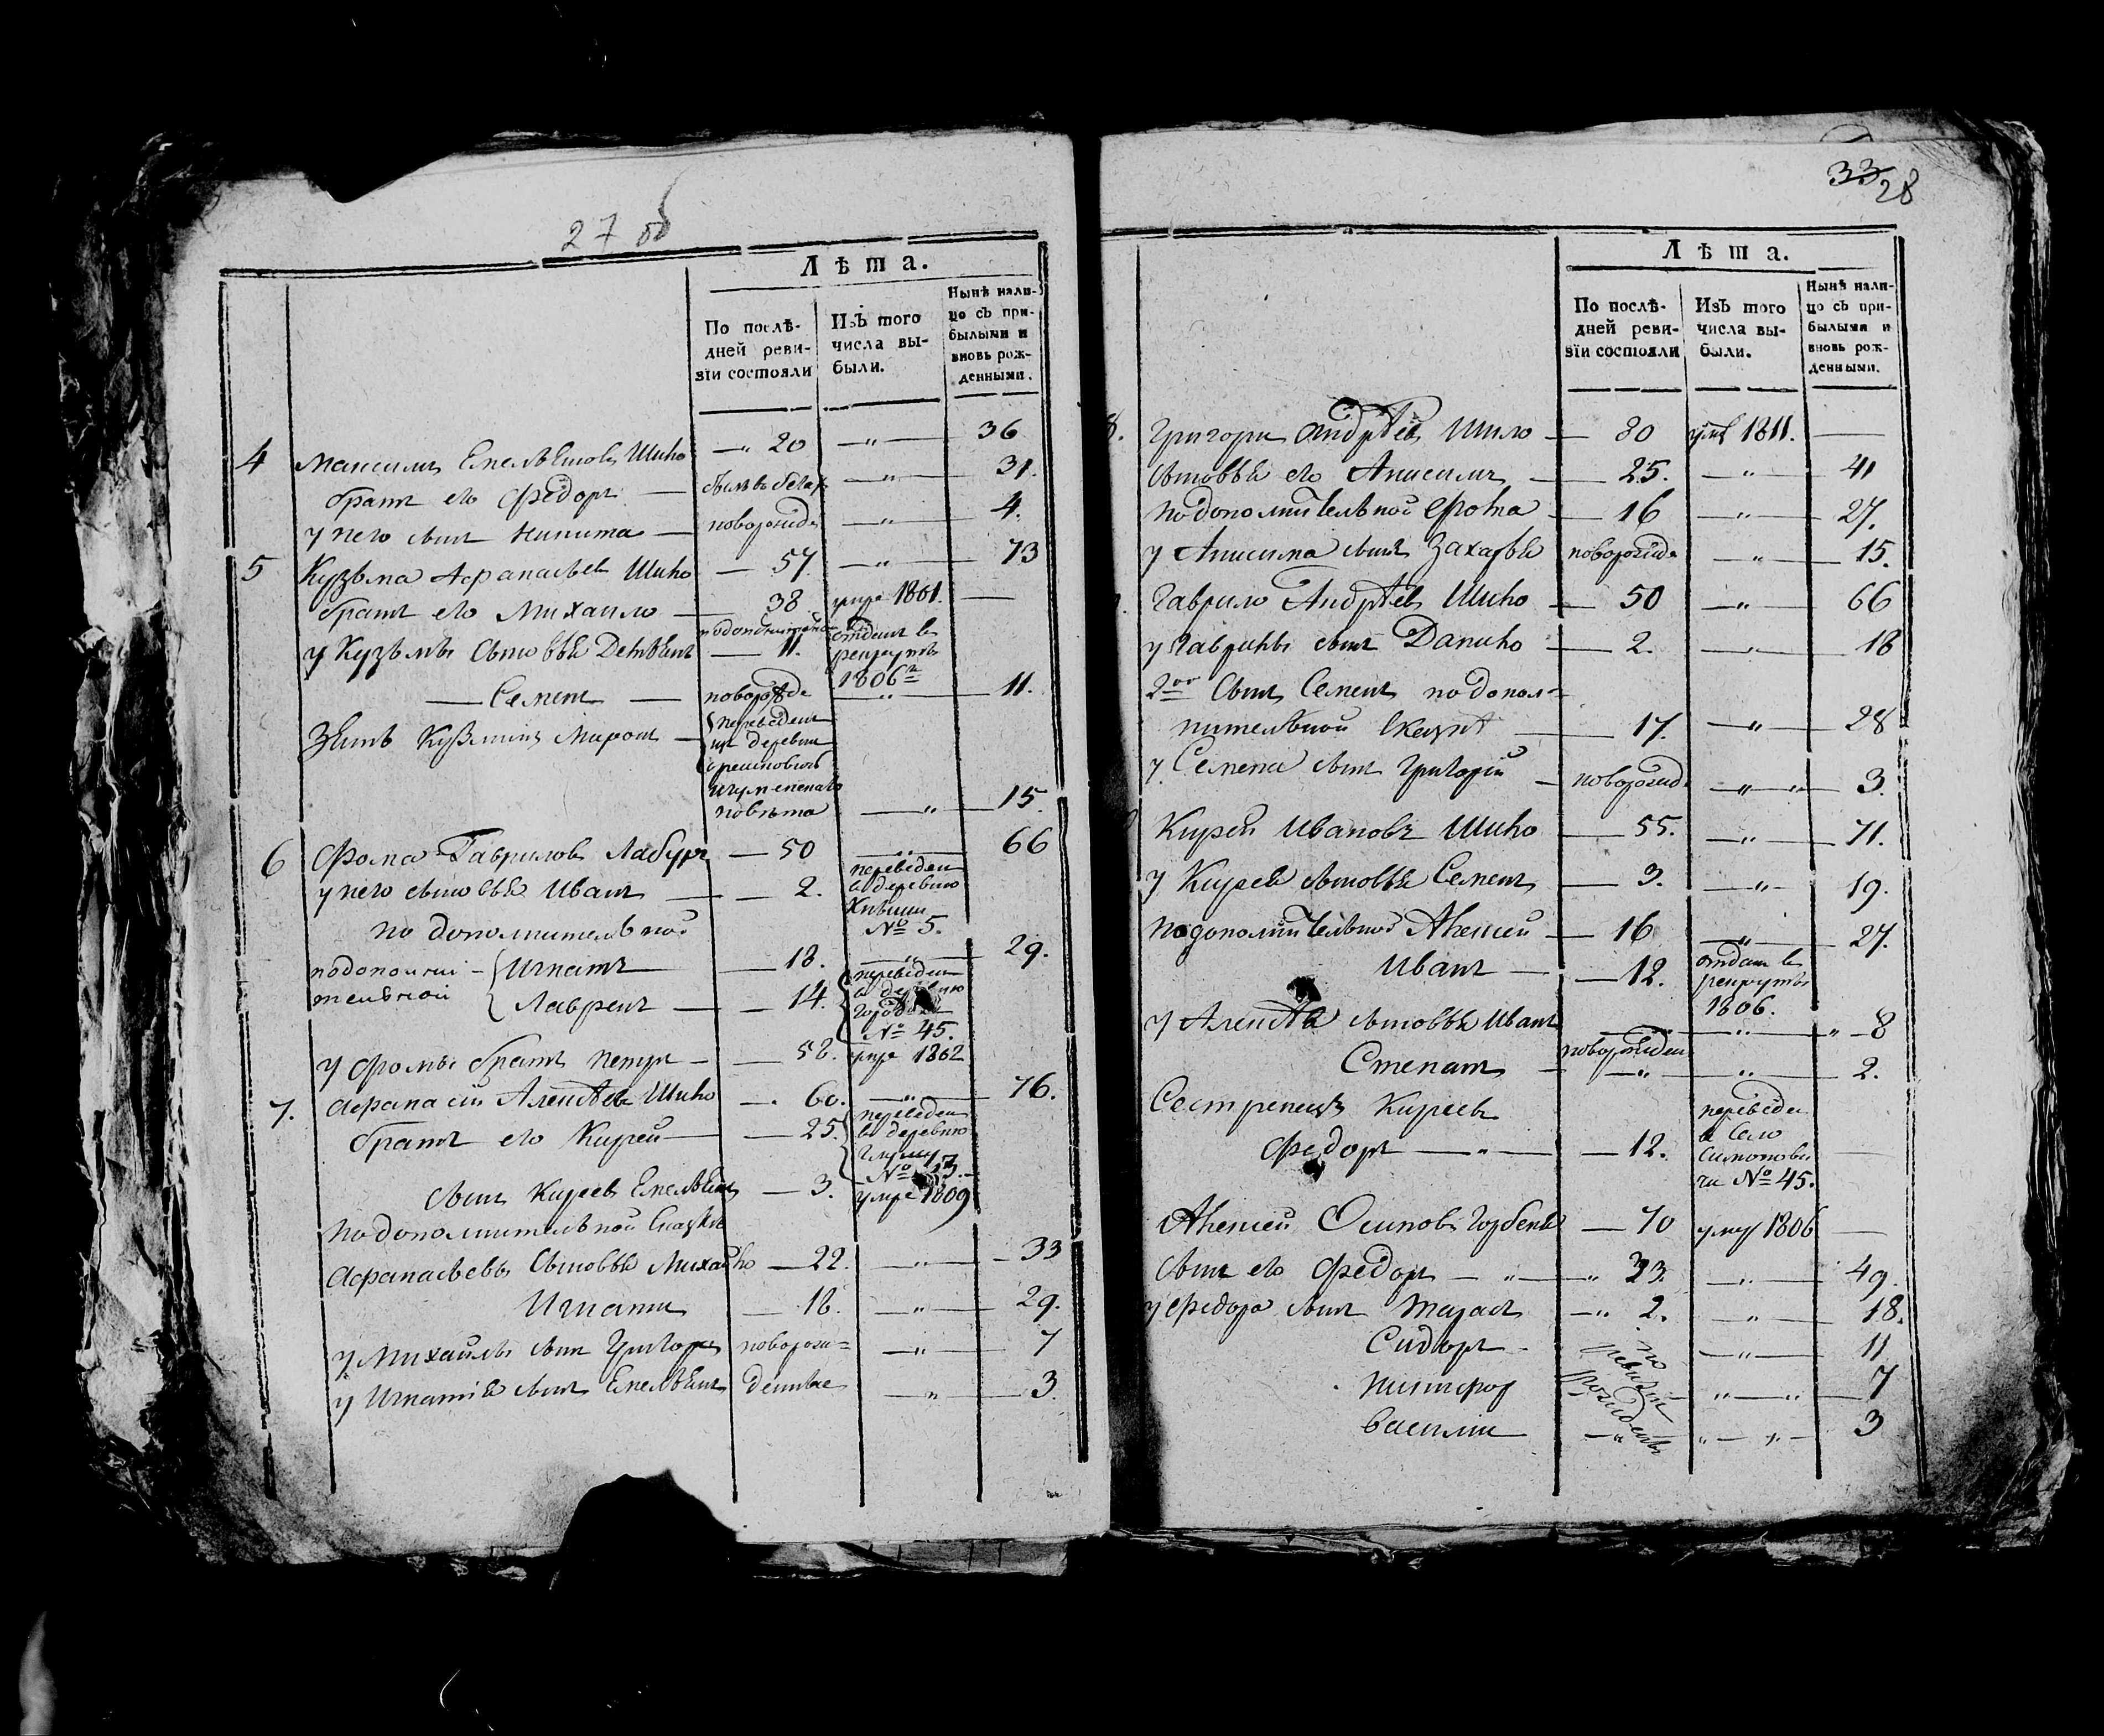 27 об
Лѣта.
По послѣ-
дней реви-
зіи состояли
Изъ того
числа вы-
были.
Нынѣ нали-
цо съ при-
былыми и
вновь рож-
денными.
4 Максимъ Емельяновъ Шило — „ 20 — „ — 36
братъ его Федоръ — — „ — 31.
у него сынъ Никита — новорожде — „ — 4.
5 Кузьма Афанасьевъ Шило — 57. — „ — 73
братъ его Михайло — 38 умре 1801. —
у Кузьмы сыновья — 11. отданъ въ
рекруты
1806 г
— Семенъ — новорожде — „ — 11.
Зять Кузминъ Миронъ — переведенъ
изъ деревни
повѣта — „ — 15.
6 Фома Гавриловъ — 50 — „ — 66
у него сыновья Иванъ — — 2. переведен
въ деревню
№ 5.
по дополнительной
подополни- Игнатъ — 18. — „ — 29.
тельной Лавренъ — — 14. переведен
в деревню
№ 45.
у Фомы братъ Петръ — — 58. умре 1802
7. Афанасій Алексѣевъ Шило — 60. — „ — 76.
братъ его Кирей — — 25. переведен
въ деревню
№
сынъ Киреевъ Емельянъ — 3. умре 1809
по дополнительной сказкѣ
Афанасьевы сыновья Михайло — 22. — „ — 33
Игнатій — 18. — „ — 29.
у Михайлы сынъ Григорей новорож= — „ — 7
у Игнатія сынъ Емельянъ денные — „ — 3.
33 28
Лѣта.
По послѣ-
дней реви-
зіи состояли
Изъ того
числа вы-
были.
Нынѣ нали-
цо съ при-
былыми и
вновь рож-
денными.
8. Григори Андрѣевъ Шило — 80 1811. —
сыновья его Анисимъ — 25. — „ — 41
по дополнительной — 16 — „ — 27.
у Анисима сынъ новорожде — „ — 15.
Гаврило Андрѣевъ Шило — 50 — „ — 66
у Гаврилы сынъ Данило — 2. — „ — 18
2ой сынъ Семенъ по допол=
нительной сказкѣ — 17. — „ — 28
у Семена сынъ Григорій — новорожд — „ — 3.
Кирей Ивановъ Шило — 55. — „ — 71.
у Кирея сыновья Семенъ — 3. — „ — 19.
по дополнительной Алексей — 16 — „ — 27.
Иванъ — — 12. отдан въ
рекруты
1806.
у Алексѣя сыновья Иванъ — „ — „ — 8
Степанъ — новорожден — „ — 2.
Сестренецъ Киреевъ
Федоръ — „ — — 12. переведен
в село
№ 45. —
Алексей Осиповъ — 70 умре 1806 —
сынъ его Федоръ — „ — „ 33. — „ — 49.
у Федора сынъ Тарасъ — „ 2. — „ — 18.
Сидоръ — по ревизіи рожденъ — „ — 11
„ — „ — 7
Василій — — „ — „ — 3